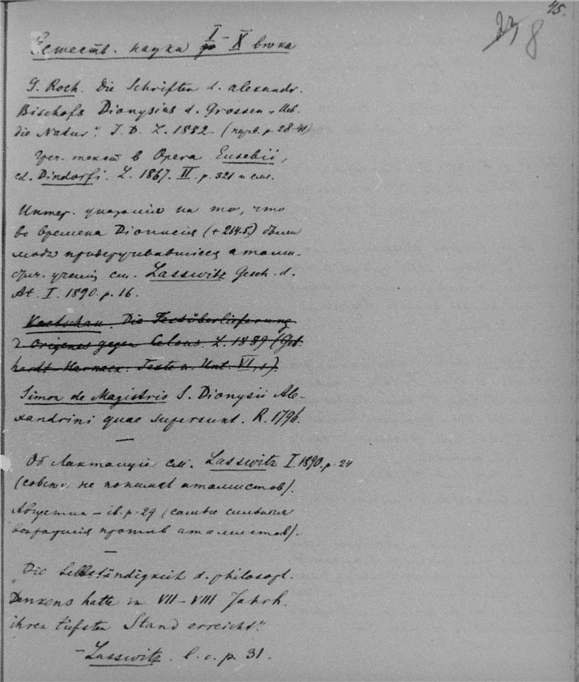 45.
23 8
Естеств. науки I – X века
G. Roch. Die Schriften d. alexandr.
Bischofs Dionysius d. Grossen „Ueb.
die Natur“. I. D. L. 1882. (перв. p. 28-41)
Греч. текст в Opera Eusebii,
ed. Dindorfi. L. 1867. II. p. 321 и слѣ.
Интер. указанія на то, что
во времена Дионисія (+ 2145) были
люди придерживавшіеся атоми-
стич. ученія см. Lasswitz Gesch. d.
At. I. 1890 p. 16.
Koetschau. Die Textüberlieferung
d. Origenes gegen Celsus. L. 1889 (Geb-
hardt-Harnack. Texte u. Unt. VI, 1).
Simon de Magistris S. Dionysii Ale-
xandrini quae supersunt. R. 1796.
Об Лактанціе см. Lasswitz I. 1890. p. 24
(совсѣм не понимал атомистов).
Августин – ib. p. 29 (самые сильныя
возраженія против атомистов).
„Die Selbständigkeit d. philosoph.
Denkens hatte im VII – VIII Jahrh.
ihren tiefsten Stand erreicht“.
– Lasswitz. l. c. p. 31.